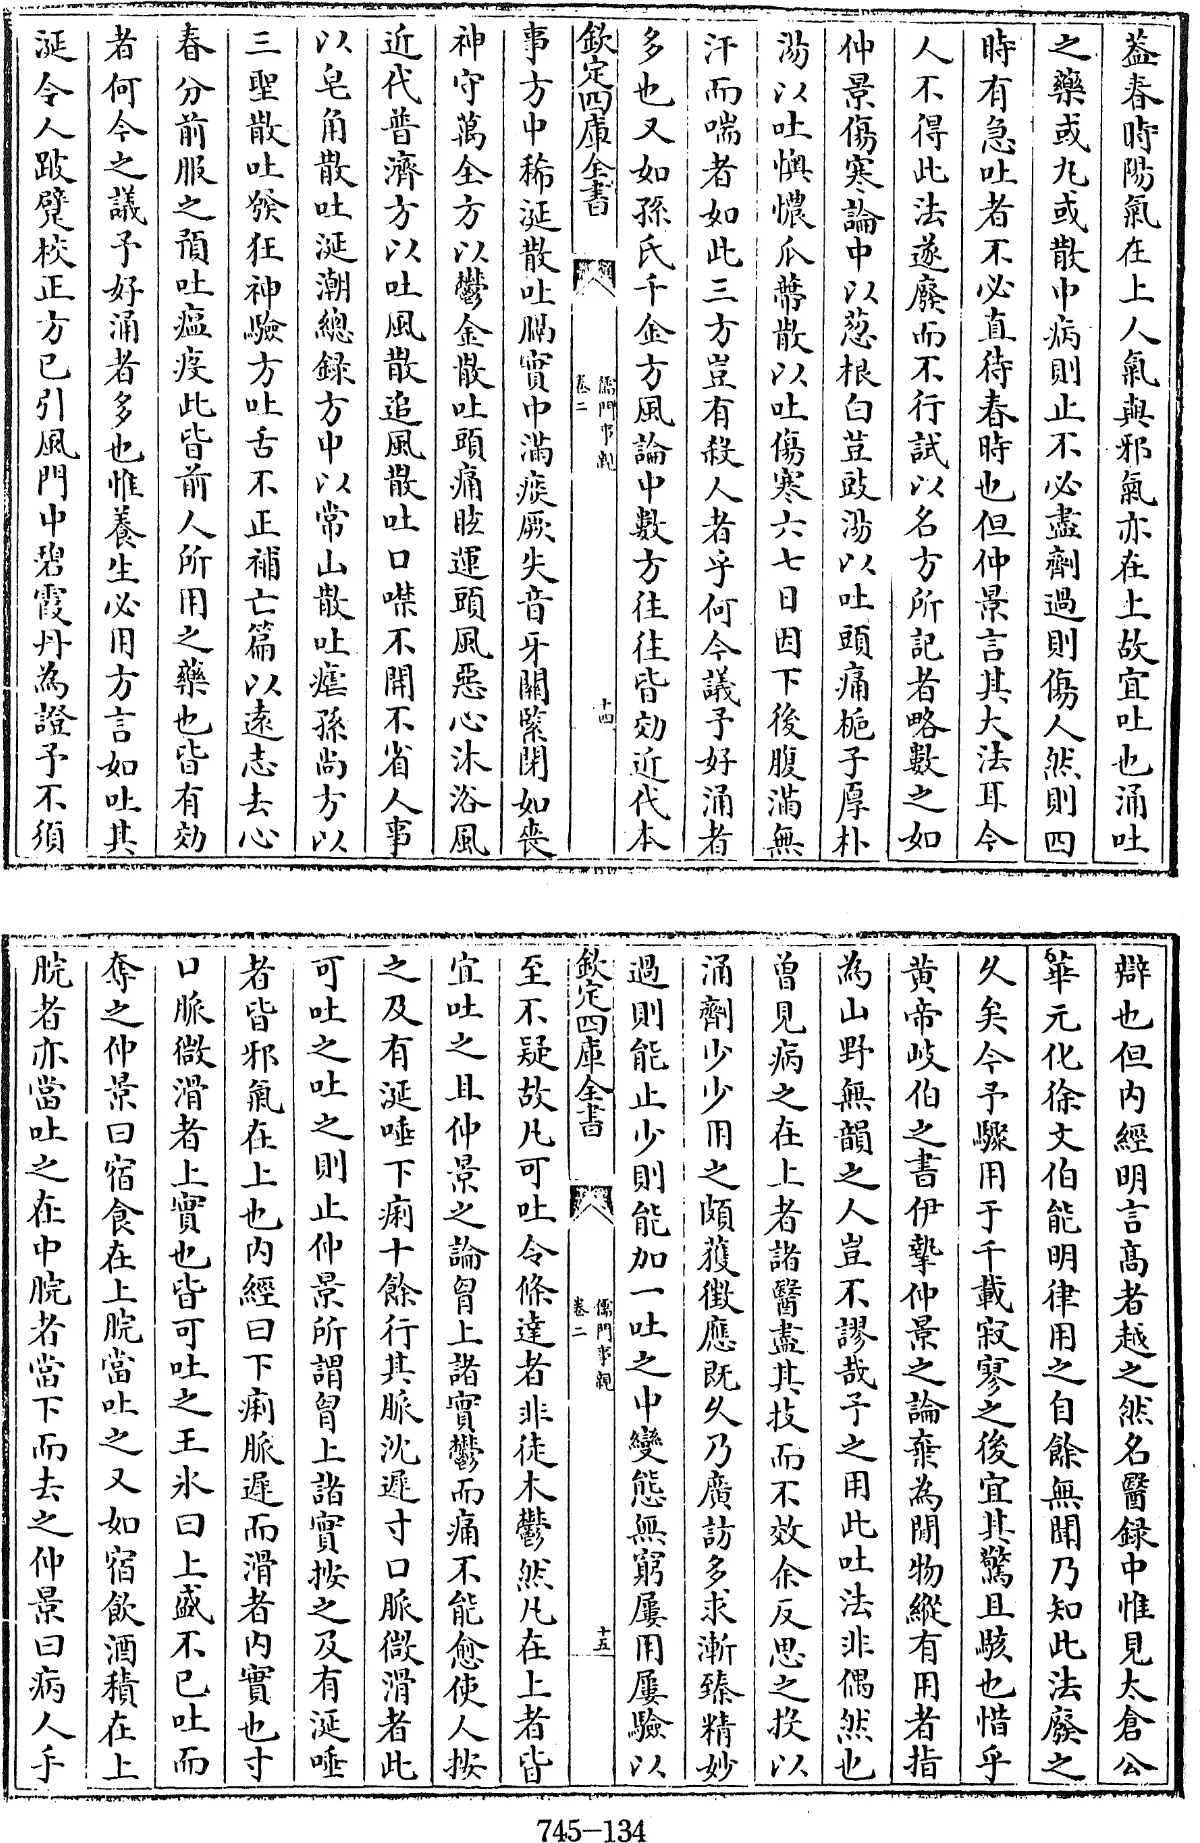 葢春時陽氣在上人氣與邪氣亦在上故宜吐也涌吐
之藥或丸或散中病則止不必盡劑過則傷人然則四
時有急吐者不必直待春時也但仲景言其大法耳今
人不得此法遂廢而不行試以名方所記者略數之如
仲景傷寒論中以葱根白豆豉湯以吐頭痛梔子厚朴
湯以吐懊憹瓜蔕散以吐傷寒六七日因下後腹滿無
汗而喘者如此三方豈有殺人者乎何今議予好涌者
多也又如孫氏千金方風論中數方往往皆効近代本
欽定四庫全書
儒門事親
卷二
十四
事方中稀涎散吐膈實中滿痰厥失音牙關緊閉如喪
神守萬全方以鬱金散吐頭痛眩運頭風惡心沐浴風
近代普濟方以吐風散追風散吐口噤不開不省人事
以皂角散吐涎潮總録方中以常山散吐瘧孫尚方以
三聖散吐發狂神驗方吐舌不正補亡篇以遠志去心
春分前服之預吐瘟疫此皆前人所用之藥也皆有効
者何今之議予好涌者多也惟養生必用方言如吐其
涎令人跛躄校正方已引風門中碧霞丹為證予不須
辯也但内經明言髙者越之然名醫録中惟見太倉公
華元化徐文伯能明律用之自餘無聞乃知此法廢之
乆矣今予驟用于千載寂寥之後宜其驚且駭也惜乎
黄帝岐伯之書伊摯仲景之論棄為閒物縱有用者指
為山野無韻之人豈不謬哉予之用此吐法非偶然也
曽見病之在上者諸醫盡其技而不效余反思之投以
涌劑少少用之頗獲徵應既乆乃廣訪多求漸臻精妙
過則能止少則能加一吐之中變態無窮屢用屢驗以
欽定四庫全書
儒門事親
卷二
十五
至不疑故凡可吐令條達者非徒木鬱然凡在上者皆
宜吐之且仲景之論胷上諸實鬱而痛不能愈使人按
之及有涎唾下痢十餘行其脈沈遲寸口脈微滑者此
可吐之吐之則止仲景所謂胷上諸實按之及有涎唾
者皆邪氣在上也内經曰下痢脈遲而滑者内實也寸
口脈微滑者上實也皆可吐之王氷曰上盛不已吐而
奪之仲景曰宿食在上脘當吐之又如宿飲酒積在上
脘者亦當吐之在中脘者當下而去之仲景曰病人手
745-134